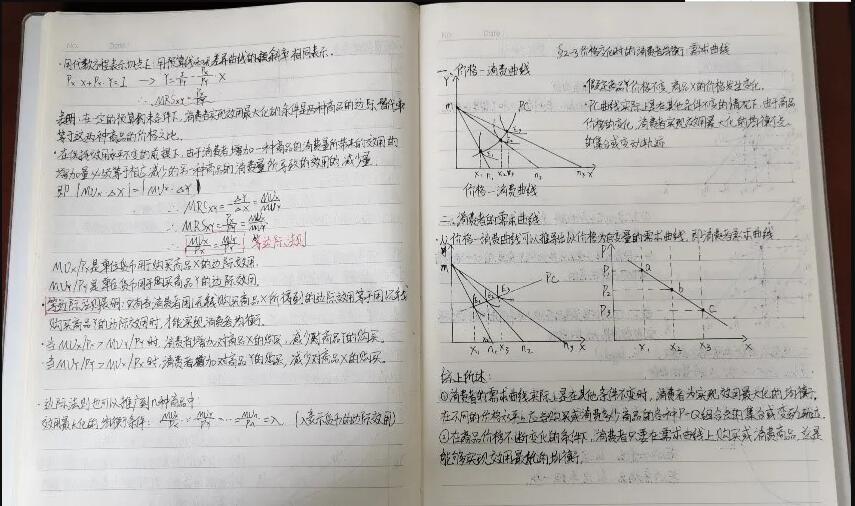 No.
Date
·用代数方程表示切点上,用预算线和无差异曲线的斜率相同表示.
Px·X+Py·Y=I → Y=I/Py - Px/Py·X
∴ MRSxy=Px/Py
表明:在一定的预算约束条件下,消费者实现效用最大化的条件是两种商品的边际替代率
等于这两种商品的价格之比.
·在保持效用水平不变的前提下,由于消费者增加一种商品的消费量所带来的效用的
增加量必须等于相应减少的另一种商品的消费量所导致的效用的减少量.
即 |MUx·ΔX|=|MUy·ΔY|
∴ MRSxy=-ΔY/ΔX=MUx/MUy
∴ MRSxy=Px/Py=MUx/MUy
∴ MUx/Px=MUy/Py 等边际法则
MUx/Px是单位货币用于购买商品X的边际效用.
MUy/Py是单位货币用于购买商品Y的边际效用.
·等边际法则表明:只有当消费者用一元钱购买商品X所得到的边际效用等于用一元钱
购买商品Y的边际效用时,才能实现消费者均衡.
·当MUx/Px>MUy/Py时,消费者增加对商品X的购买,减少对商品Y的购买.
当MUy/Py>MUx/Px时,消费者增加对商品Y的购买,减少对商品X的购买.
·边际法则也可以推广到n种商品中:
效用最大化的均衡条件:MUx/Px=MUy/Py=…=MUn/Pn=λ (λ表示货币的边际效用)
No.
Date
§2-3价格变化时的消费者均衡 需求曲线
一、价格-消费曲线
Y
m
PC
X₁ n₁ X₂ X₃ n₂ n₃ X
价格-消费曲线
·假定商品Y价格不变,商品X的价格发生变化.
·PC曲线实际上是在其他条件不变的情况下,由于商品
价格的变化,消费者实现效用最大化的均衡点
的集合或变动轨迹
二、消费者的需求曲线
从价格-消费曲线可以推导出以价格为自变量的需求曲线,即消费者需求曲线
m
PC
X₁ n₁ X₃ n₂ n₃ X
P
P₁ a
P₂ b
P₃ c
X₁ X₂ X₃ X
综上所述:
①消费者的需求曲线实际上是在其他条件不变时,消费者为实现效用最大化的均衡,
在不同的价格水平上愿意购买或消费多少商品的各种P-Q组合点的集合或变动轨迹
②在商品价格不断变化的条件下,消费者只要在需求曲线上购买或消费商品,总是
能够实现效用最大化的均衡.